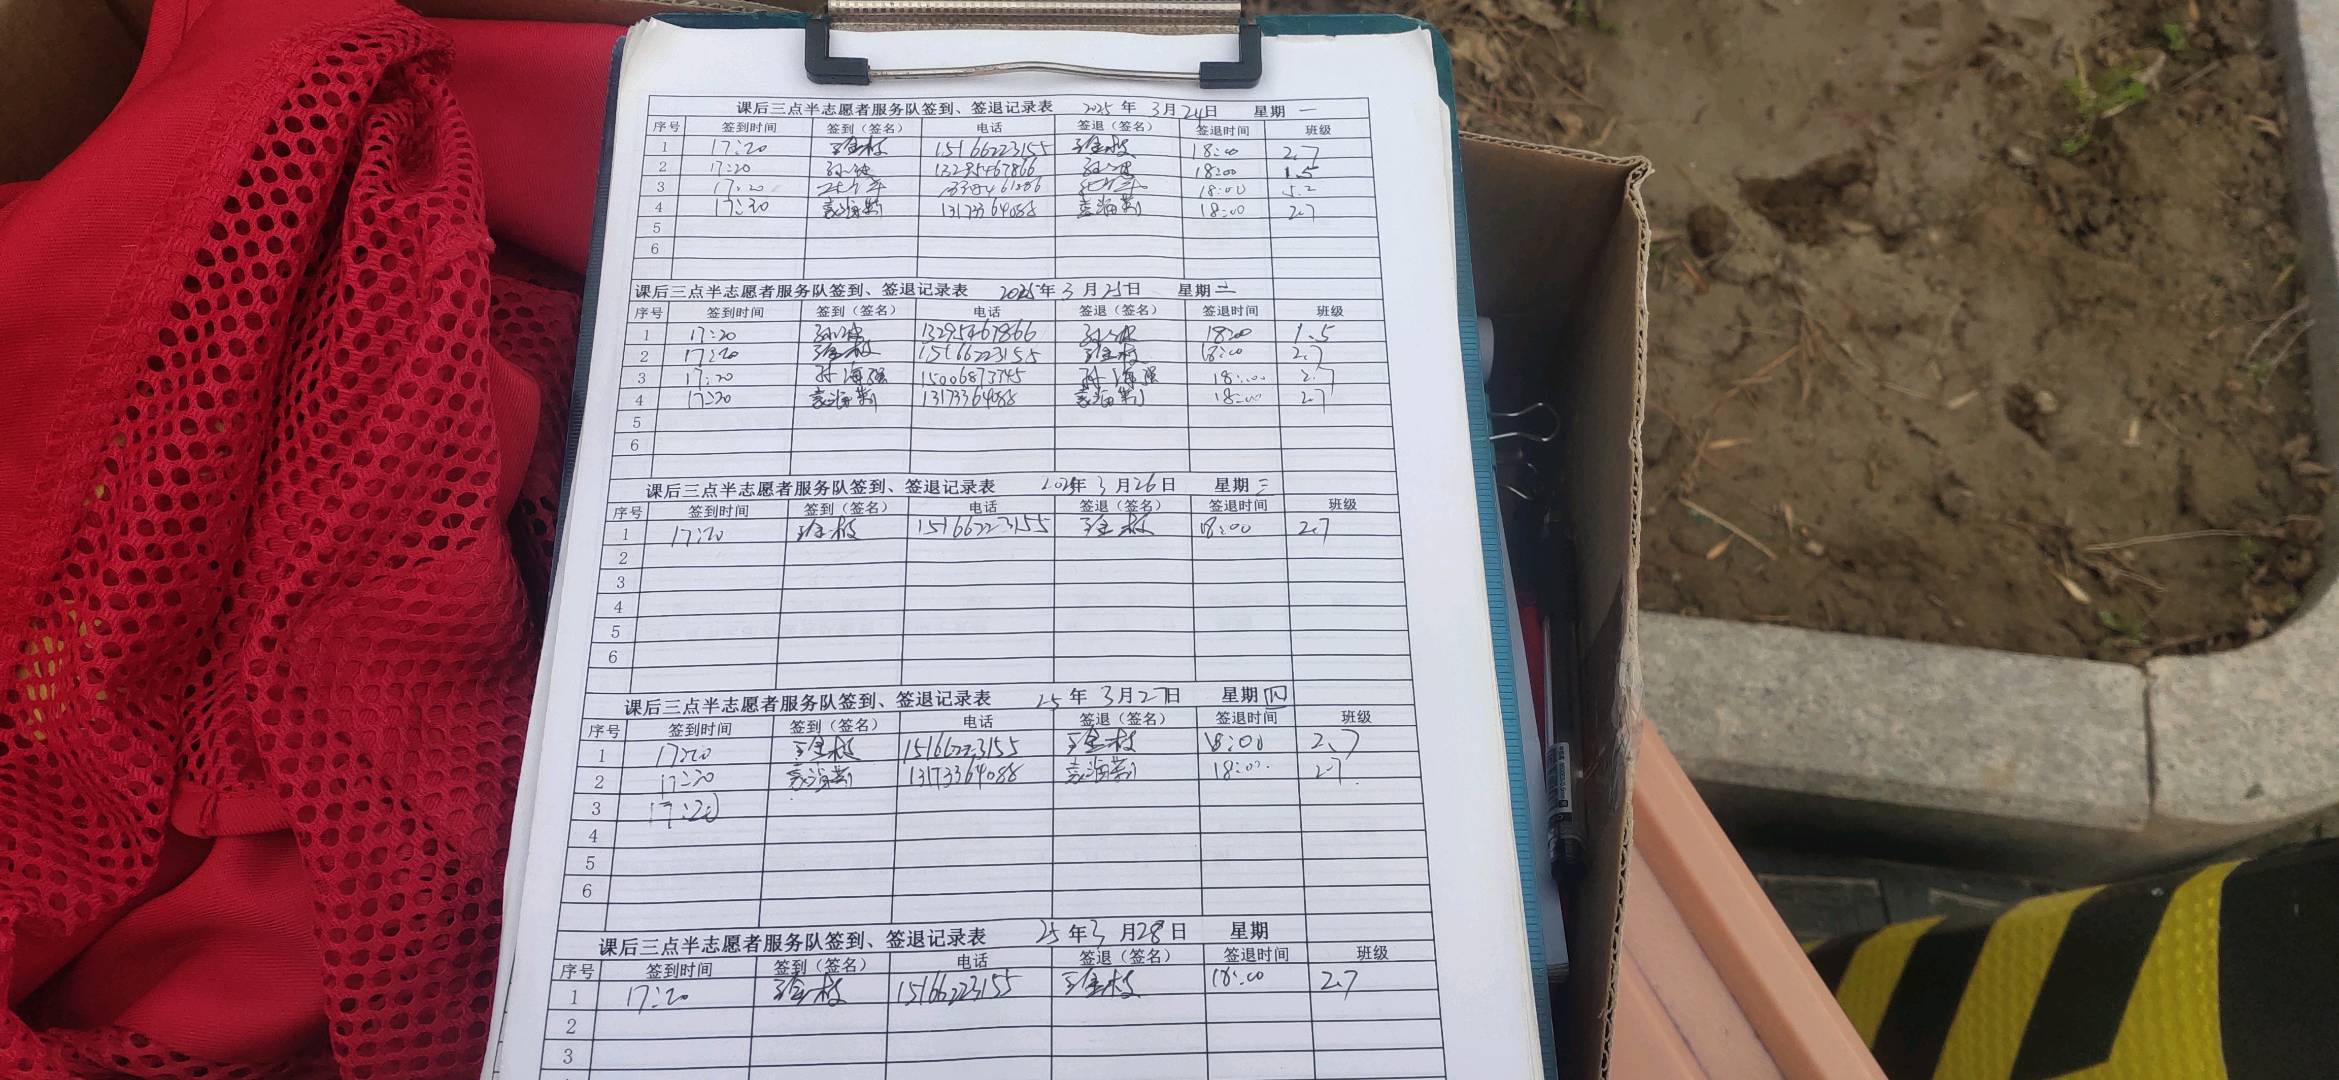 课后三点半志愿者服务队签到、签退记录表 2025 年 3月24日 星期 一
序号 签到时间 签到（签名） 电话 签退（签名） 签退时间 班级
1 17:20 15166223155 18:00 2.7
2 17:20 13295467866 18:00 1.5
3 17:20 18:00 5.2
4 17:20 袁海荣 13173364088 袁海荣 18:00 2.7
5
6
课后三点半志愿者服务队签到、签退记录表 2025年 3 月 25日 星期 二
序号 签到时间 签到（签名） 电话 签退（签名） 签退时间 班级
1 17:20 13295467866 1800 1.5
2 17:20 15166223155 18:00 2.7
3 17:20 孙海强 15006873745 孙海强 18:00 2.7
4 17:20 袁海荣 13173364088 袁海荣 18:00 2.7
5
6
课后三点半志愿者服务队签到、签退记录表 2025年 3 月26日 星期 三
序号 签到时间 签到（签名） 电话 签退（签名） 签退时间 班级
1 17:20 15166223155 18:00 2.7
2
3
4
5
6
课后三点半志愿者服务队签到、签退记录表 25 年 3月27日 星期 四
序号 签到时间 签到（签名） 电话 签退（签名） 签退时间 班级
1 17:20 15166223155 18:00 2.7
2 17:20 袁海荣 13173364088 袁海荣 18:00 2.7
3 17:20
4
5
6
课后三点半志愿者服务队签到、签退记录表 25 年3 月28日 星期
序号 签到时间 签到（签名） 电话 签退（签名） 签退时间 班级
1 17:20 15166223155 18:00 2.7
2
3